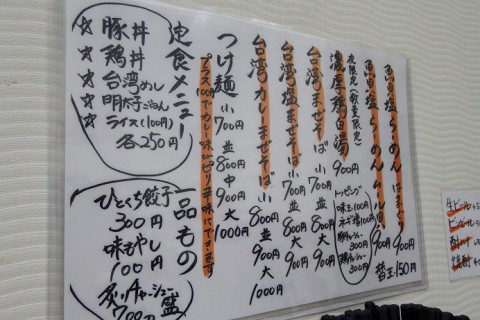 魚貝塩らーめん はまぐり
900
魚貝塩らーめん ムール貝
900
替玉150円
夜限定(数量限定)
濃厚鶏白湯
900円
トッピング
味玉100円
ネギ増100円
豚チャーシュー
300円
鶏チャーシュー
300円
台湾まぜそば
小700 並800円 大900円
台湾塩まぜそば
小700円 並800円 大900円
台湾カレーまぜそば
小800円 並900円 大1000円
つけ麺 小700円 並800円 中900 大1000
プラス100円でカレー味orピリ辛味にできます
定食メニュー
☆豚丼
☆鶏丼
☆台湾めし
☆明太子ごはん
☆ライス(100円)
各250円
一品もの
ひとくち餃子
300円
味もやし
100円
炙りチャーシュー盛
700円
生ビール